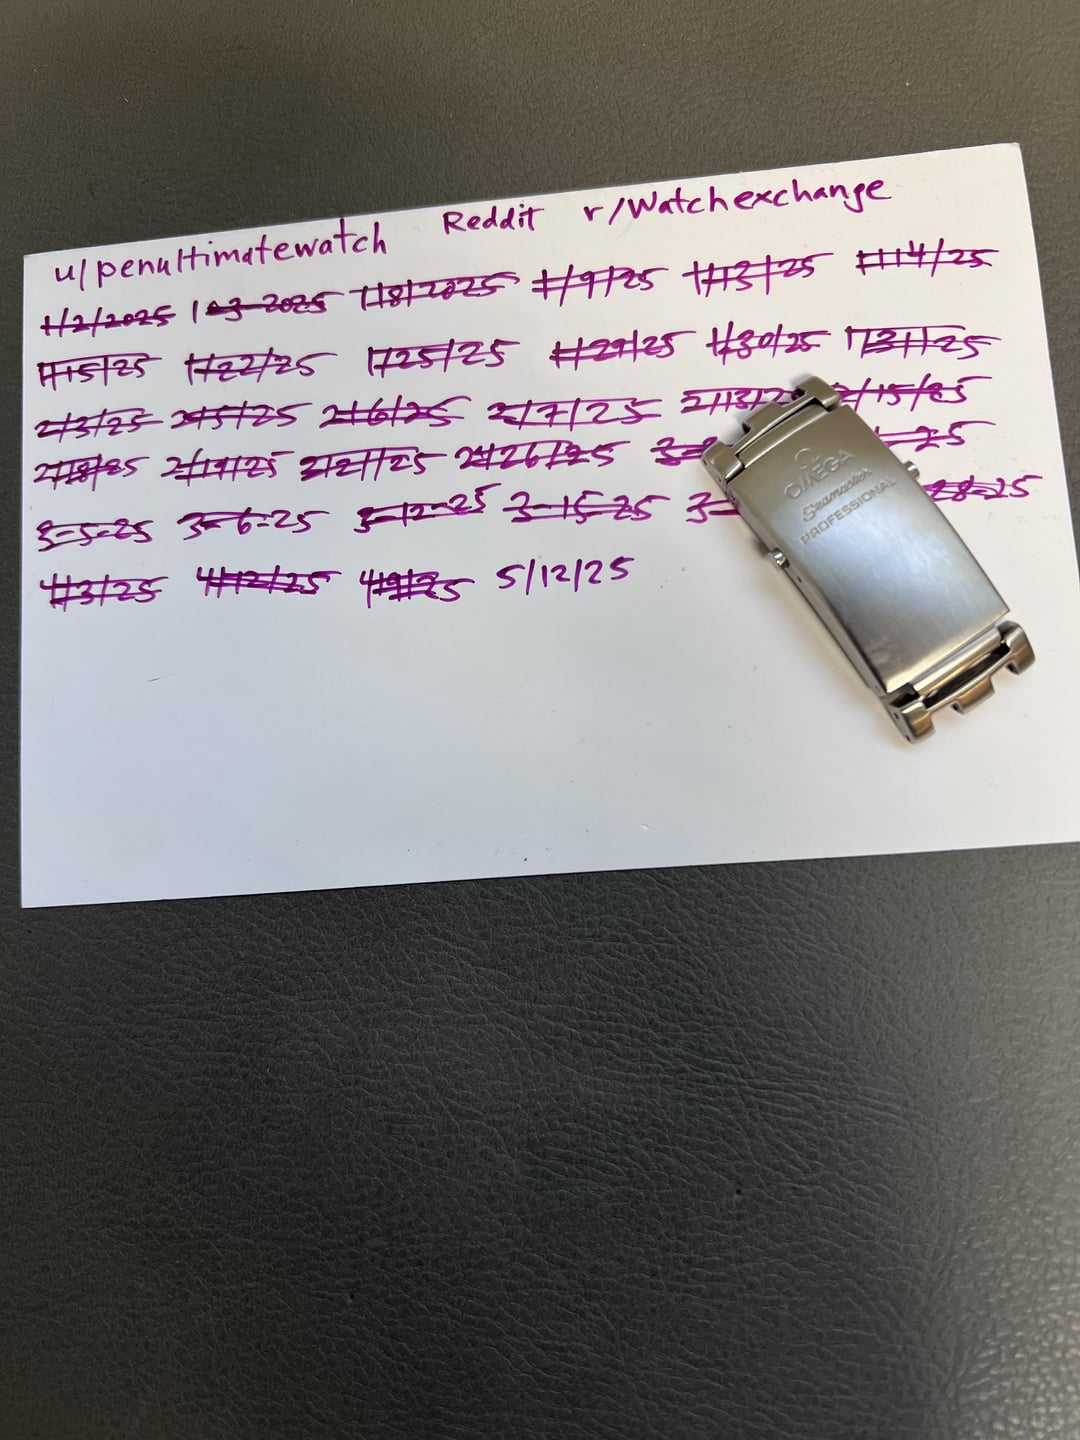 u/penultimatewatch Reddit r/Watchexchange
1/2/2025 1-3-2025 1/8/2025 1/9/25 1/13/25 1/14/25
1/15/25 1/22/25 1/25/25 1/29/25 1/30/25 1/31/25
2/3/25 2/5/25 2/6/25 2/7/25 2/13/2 2/15/25
2/18/25 2/19/25 2/21/25 2/26/25 3- -25
3-5-25 3-6-25 3-12-25 3-15-25 3- 28-25
4/3/25 4/12/25 4/9/25 5/12/25
Ω
OMEGA
Seamaster
PROFESSIONAL